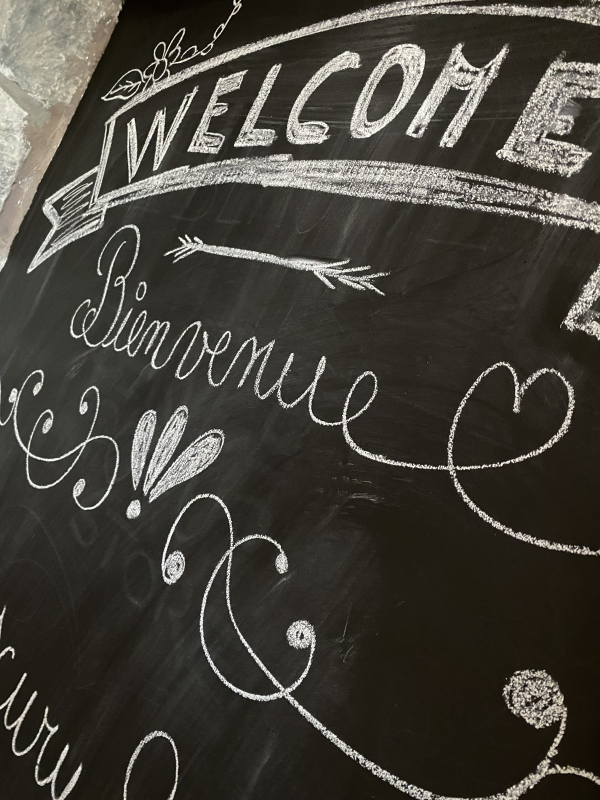 WELCOME
Bienvenue